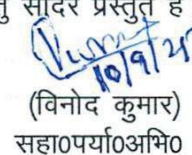 तु सादर प्रस्तुत है
10/9/25
(विनोद कुमार)
सहा0पर्या0अभि0